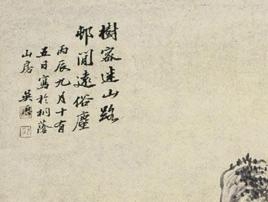 樹密迷山路
邨閒遠俗塵
丙辰九月十有
五日寫於桐蔭
山房 吳